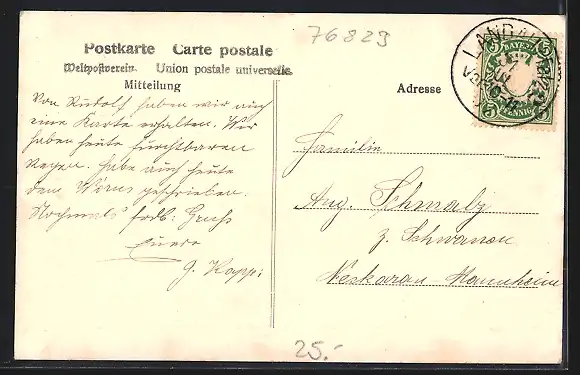 76823
Postkarte Carte postale
Weltpostverein. Union postale universelle.
Mitteilung
Adresse
LANDAU
BAYERN
5 5
PFENNIG
Von Rudolf haben wir auch
eine Karte erhalten. Wir
haben heute furchtbaren
Regen. Habe auch heute
dem geschrieben.
Nochmals Gruß
Euere
G. Kopp
Familie
Aug. Schmalz
z. Schwanen
Neckarau Mannheim
25.-